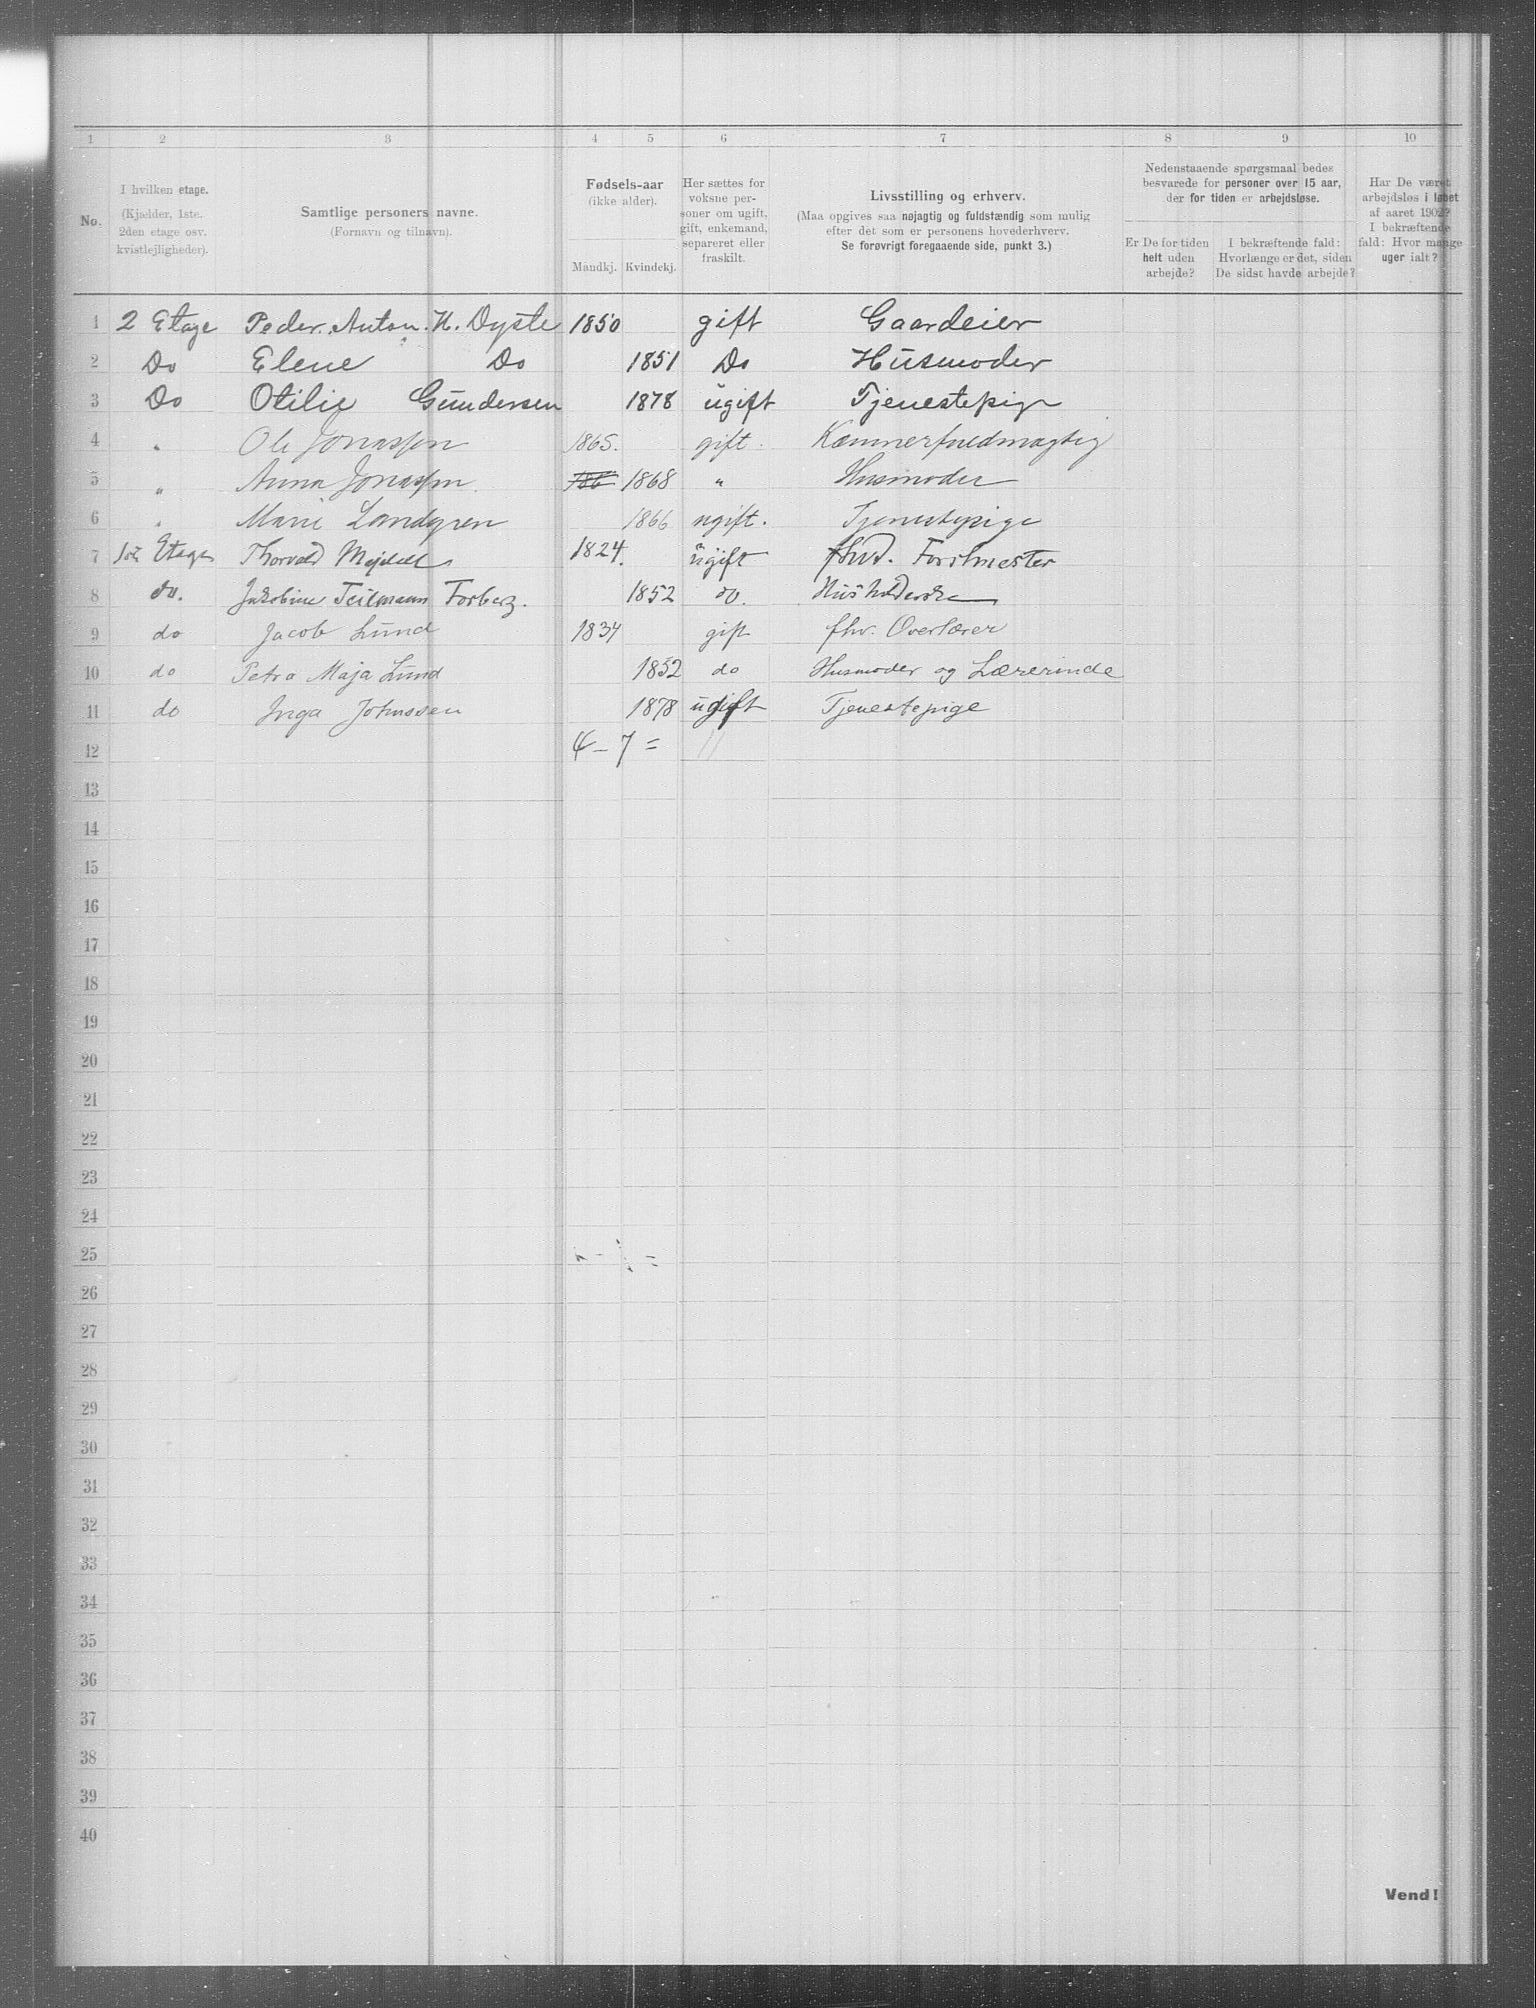 1 2 3 4 5 6 7 8 9 10
No.
I hvilken etage.
(Kjælder, 1ste.
2den etage osv.
kvistlejligheder).
Samtlige personers navne.
(Fornavn og tilnavn).
Fødsels-aar
(ikke alder).
Mandkj. Kvindekj.
Her sættes for
voksne per-
soner om ugift,
gift, enkemand,
separeret eller
fraskilt.
Livsstilling og erhverv.
(Maa opgives saa nøjagtig og fuldstændig som mulig
efter det som er personens hovederhverv.
Se forøvrigt foregaaende side, punkt 3.)
Nedenstaaende spørgsmaal bedes
besvarede for personer over 15 aar,
der for tiden er arbejdsløse.
Er De for tiden
helt uden
arbejde?
I bekræftende fald:
Hvorlænge er det, siden
De sidst havde arbejde?
Har De været
arbejdsløs i løbet
af aaret 1902?
I bekræftende
fald: Hvor mange
uger ialt?
1 2 Etage Peder Anton H. Dyste 1850 gift Gaardeier
2 Do Elene Do 1851 Do Husmoder
3 Do Otilie Gundersen 1878 ugift Tjenestepige
4 " Ole Jonassen 1865. gift. Kæmnerfuldmægtig
5 " Anna Jonassen 186 1868 " Husmoder
6 " Marie Landgren 1866 ugift. Tjenestepige
7 1ste Etage Thorvald 1824. ugift fhv. Forstmester
8 do. Jakobine Teilmann Forberg. 1852 do. Husholderske
9 do Jacob Lund 1834 gift fhv. Overlærer
10 do Petra Maja Lund 1852 do Husmoder og Lærerinde
11 do Inga Johnssen 1878 ugift Tjenestepige
12 4 - 7 = 11
13
14
15
16
17
18
19
20
21
22
23
24
25
26
27
28
29
30
31
32
33
34
35
36
37
38
39
40
Vend!